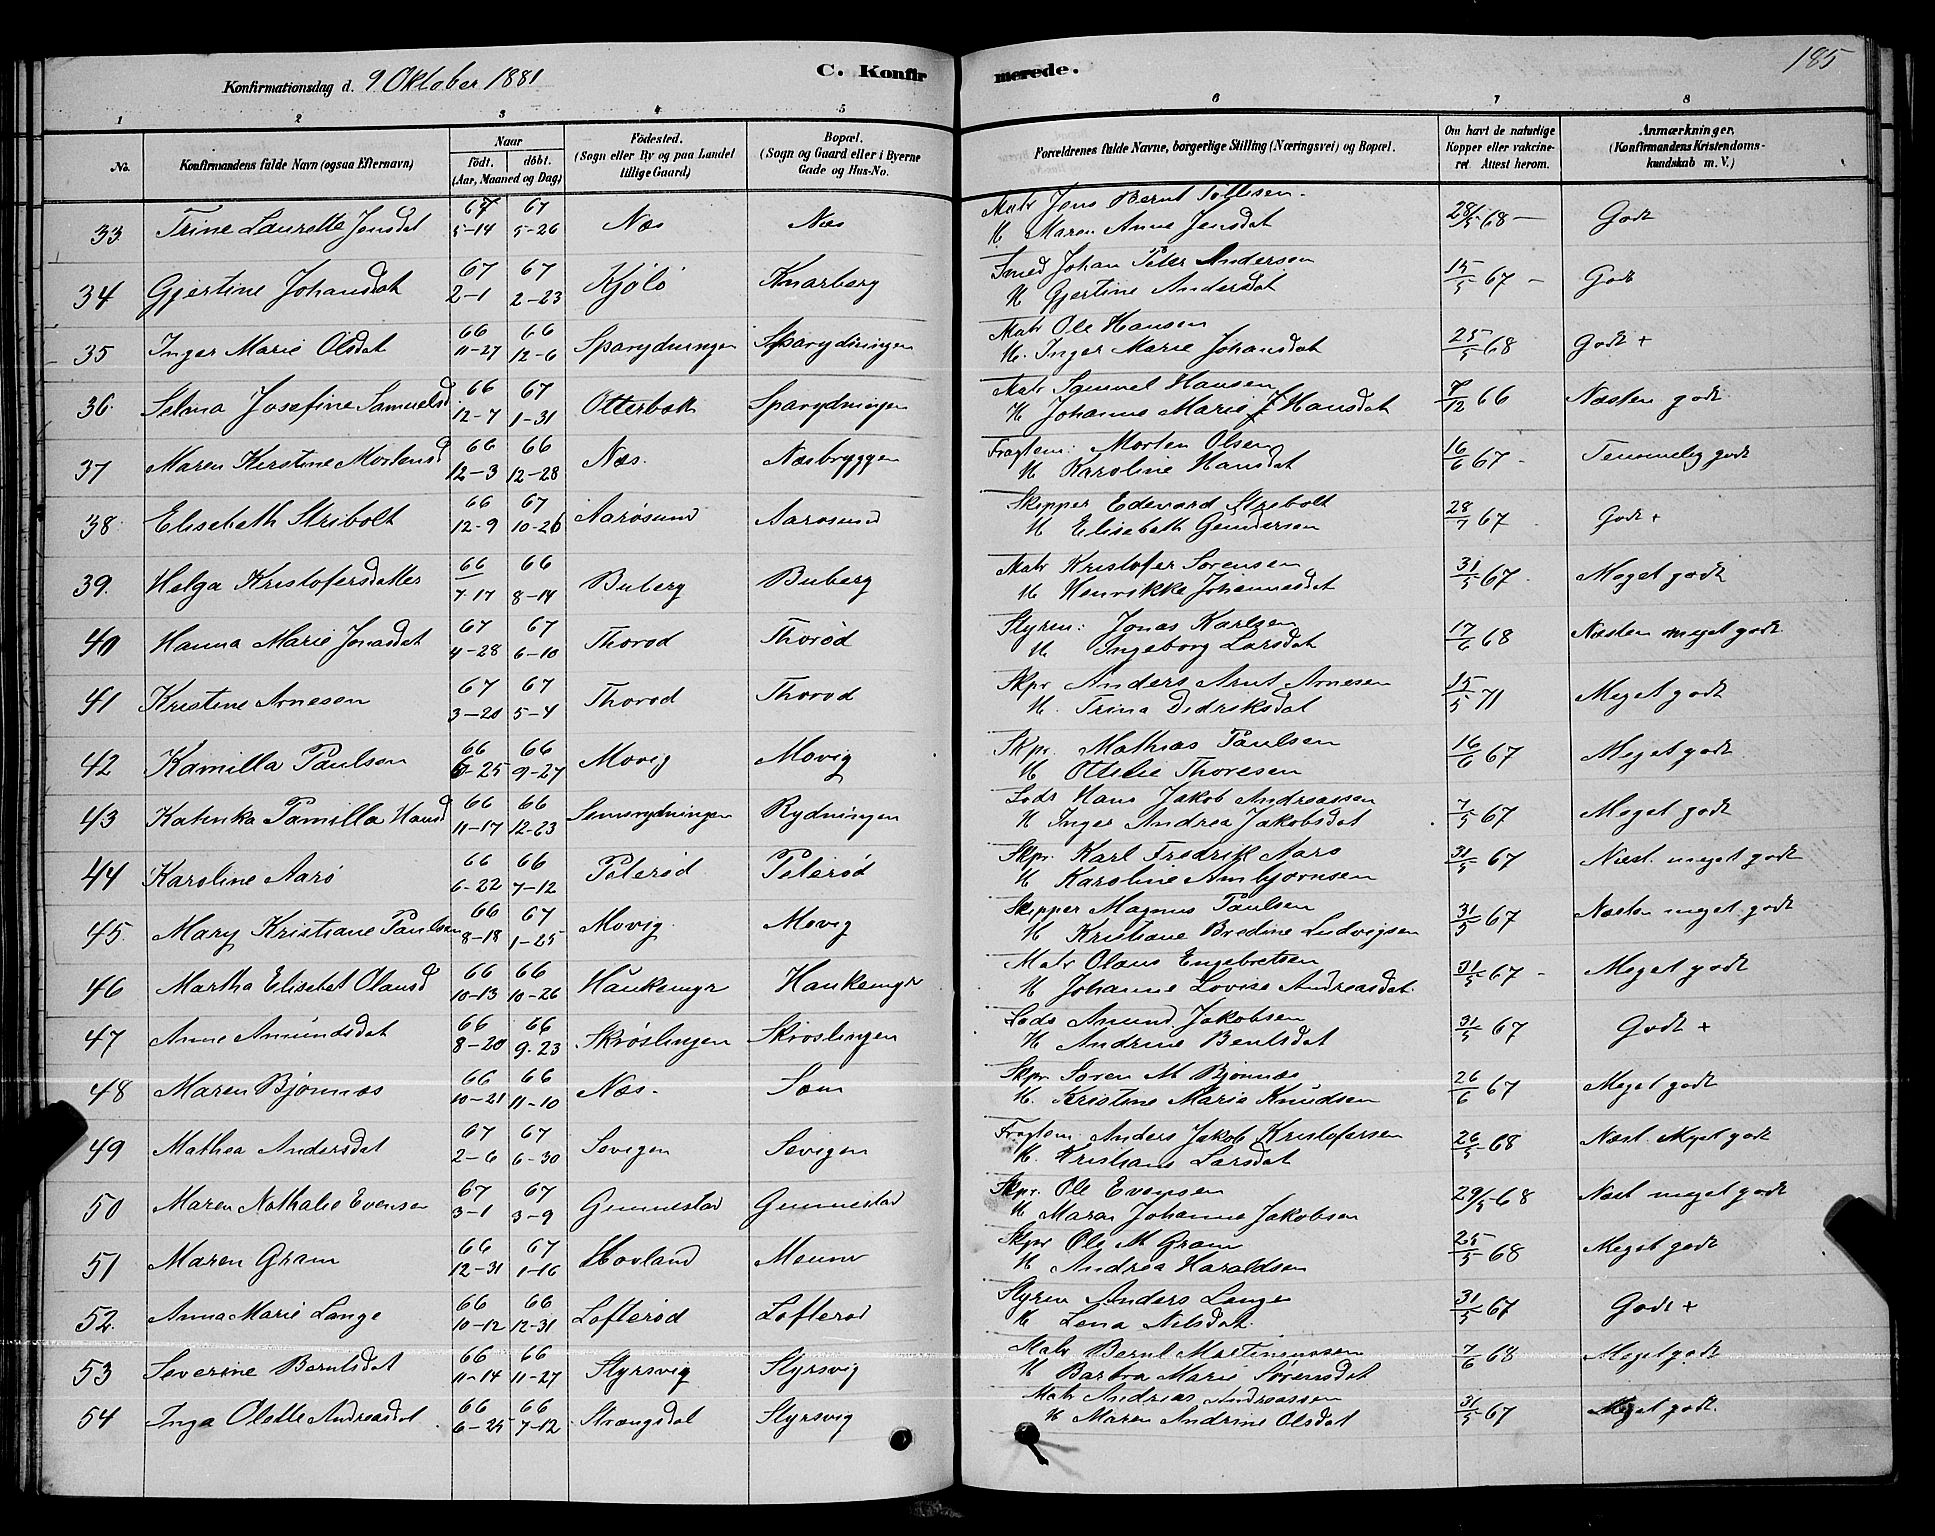 185
Konfirmationsdag d. 9 Oktober 1881 C. Konfirmerede.
1 2 3 4 5 6 7 8
No. Konfirmandens fulde Navn (ogsaa Efternavn) Naar födt. döbt. (Aar, Maaned og Dag) Födested. (Sogn eller By og paa Landet tillige Gaard) Bopæl. (Sogn og Gaard eller i Byerne Gade og Hus-No. Forældrenes fulde Navne, borgerlige Stilling (Næringsvei) og Bopæl. Om havt de naturlige Kopper eller vakcineret Attest herom. Anmærkninger. (Konfirmandens Kristendomskundskab m. V.)
67 67 Matr Jens Bernt Tollisen
33. Trine Laurette Jensdat 5-14 5-26 Næs Næs H Maren Anne Jensdat 28/5 68 — Godt
67 67 Smed Johan Peter Andersen
34 Gjertine Johansdat 2-1 2-23 Kjölö Knarberg H Gjertine Andersdat 15/5 67 — Godt
66 66 Matr Ole Hansen
35 Inger Marie Olsdat 11-27 12-6 Sparydningen Sparydningen H. Inger Marie Johansdat 25/5 68 Godt +
66 67 Matr Samuel Hansen
36. Selma Josefine Samuelsd 12-7 1-31 Otterbek Sparydningen H Johanne Marie Hansdat 7/12 66 Næsten godt
66 66 Fragtem: Morten Olsen
37 Maren Kirstine Mortensd 12-3 12-28 Næs. Næsbryggen H Karoline Hansdat 16/6 67 - Temmelig godt
66 67 Skipper Edevard Stribolt
38. Elisebeth Stribolt 12-9 10-26 Aarøsund Aarosund H Elisebeth Gundersen 28/7 67 Godt +
66 66 Matr Kristofer Sorensen
39. Helga Kristofersdatter 7-17 8-14 Buberg Buberg H Henrikke Johannesdat 31/5 67. Meget godt
67 67 Styrm: Jonas Karlsen
40 Hanna Marie Jonasdat 4-28 6-10 Thorod Thorød H Ingeborg Larsdat 17/6 68 Næsten meget godt
67 67 Skpr Anders Arnt Arnesen
41 Kristine Arnesen 3-20 5-4 Thorod Thorod H. Trina Didriksdat 15/5 71 Meget godt
66 66 Skpr. Mathias Paulsen
42 Kamilla Paulsen 6-25 9-27 Movig Movig H Ottelie Thoresen 16/6 67 Meget godt
66 66 Lods Hans Jakob Andreassen
43 Katinka Pamilla Hansd 11-17 12-23 Semsrydningen Rydningen H Inger Andrea Jakobsdat 7/5 67 Meget godt
66 66 Skpr. Karl Fredrik Aarø
44 Karoline Aarö 6-22 7-12 Peterød Peterød H Karoline Anbjørnsen 31/5 67 Næst. meget godt
66 67 Skipper Magnus Paulsen
45. Mary Kristiane Paulsen 8-18 1-25 Movig. Movig H Kristiane Bredine Ludvigsen 31/5 67 Næsten meget godt
66 66 Matr Olaus Engebretsen
46 Martha Elisebet Olausd 10-13 10-26 Haukemyr Haukemyr H Johanne Lovise Andreasdat. 31/5 67 - Meget godt
66 66 Lods Amund Jakobsen
47 Anne Amundsdat 8-20 9-23 Skrøslingen Skroslingen H Andrine Bentsdat 31/5 67 Godt +
66 66 Skpr Soren M Bjønnæs
48 Maren Bjønnæs 10-21 11-10 Næs. Sem H. Kristine Marie Knudsen 26/6 67 Meget godt
67 67 Fragtem: Anders Jakob Kristofersen
49 Mathea Andersdat 2-6 6-30 Sevigen Sevigen H. Kristiane Larsdat 26/5 68 Næst. Meget godt
67 67 Skpr. Ole Evensen
50 Maren Nathalie Evensen 3-1 3-9 Gunnestad Gunnestad H Maren Johanne Jakobsen 29/5 68 Næst meget godt
66 67 Skpr Ole M Gram
51 Maren Gram 12-31 1-16 Hovland H Andrea Haraldsen 25/5 68 Meget godt
66 66 Styrm Anders Lange
52. Anna Marie Lange 10-12 12-31 Lofterød Lofterød H Lena Nilsdat. 31/5 67 Godt +
66 66 Matr Bernt Martinussen
53 Severine Berntsdat 11-14 11-27 Styrsvig Styrsvig H Barbra Marie Sørensdat 7/6 68 Meget godt
66 66 Matr Andreas Andreassen
54 Inga Olette Andreasdat 6-25 7-12 Strængsdal Styrsvig H Maren Andrine Olsdat 31/5 67 Meget godt.